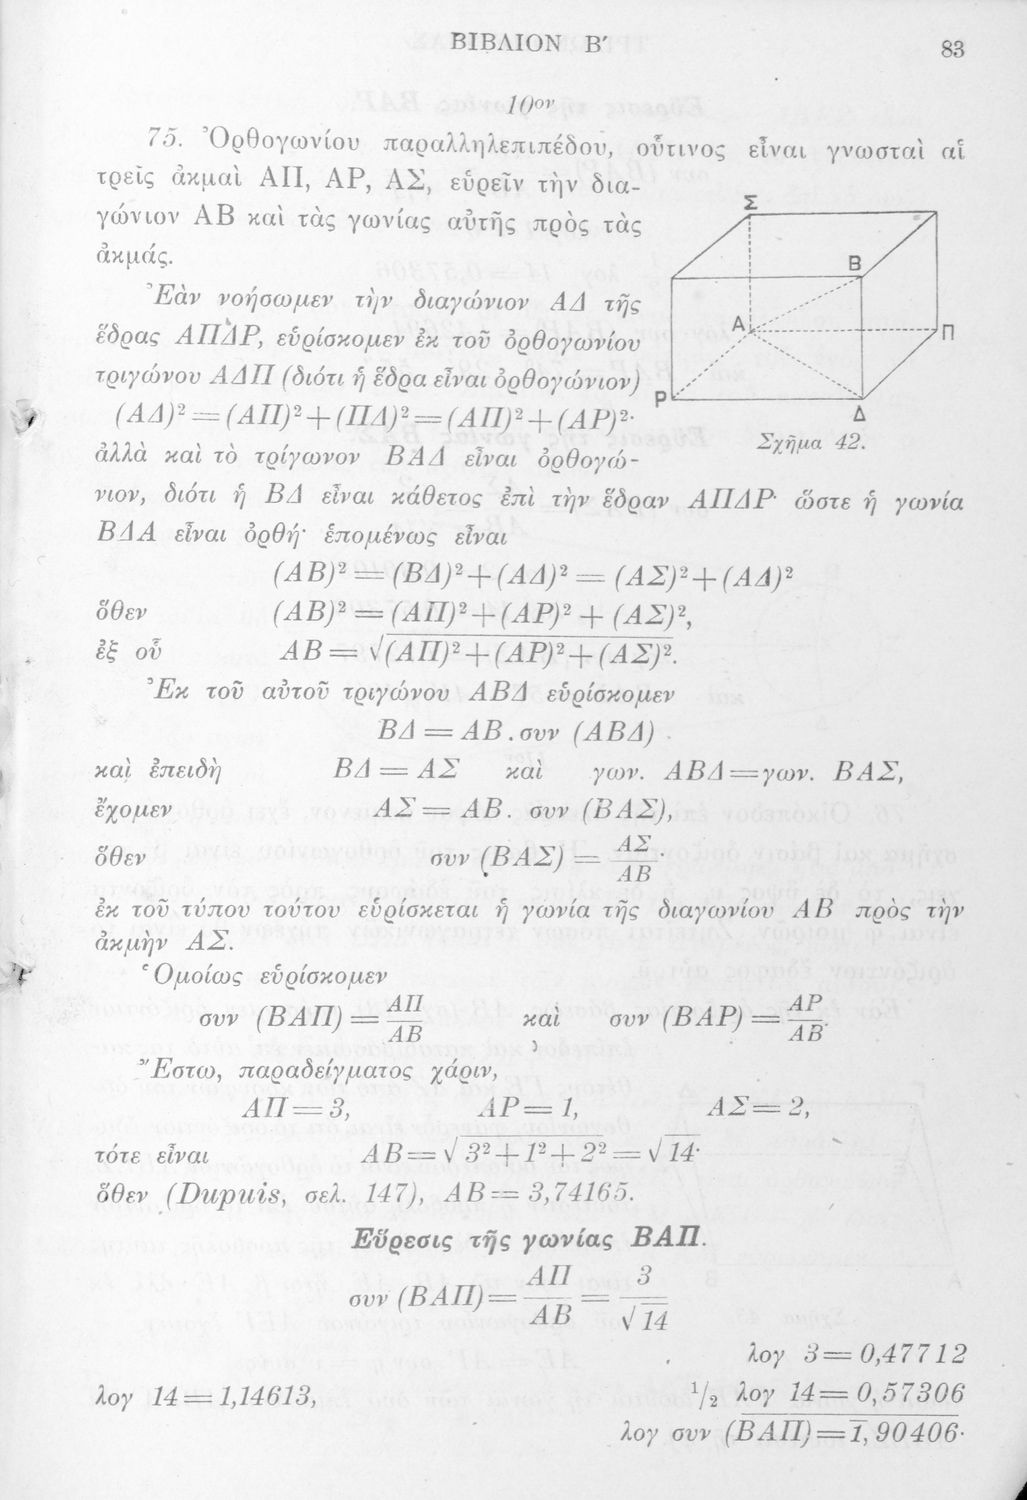 ΒΙΒΛΙΟΝ Β′ 83
10ον
75. Ὀρθογωνίου παραλληλεπιπέδου, οὗτινος εἶναι γνωσταὶ αἱ
τρεῖς ἀκμαὶ ΑΠ, ΑΡ, ΑΣ, εὑρεῖν τὴν δια-
γώνιον ΑΒ καὶ τὰς γωνίας αὐτῆς πρὸς τὰς
ἀκμάς.
Ἐὰν νοήσωμεν τὴν διαγώνιον ΑΔ τῆς
ἕδρας ΑΠΔΡ, εὑρίσκομεν ἐκ τοῦ ὀρθογωνίου
τριγώνου ΑΔΠ (διότι ἡ ἕδρα εἶναι ὀρθογώνιον)
(ΑΔ)² = (ΑΠ)² + (ΠΔ)² = (ΑΠ)² + (ΑΡ)²·
Σ
Β
Α
Π
Ρ
Δ
Σχῆμα 42.
ἀλλὰ καὶ τὸ τρίγωνον ΒΑΔ εἶναι ὀρθογώ-
νιον, διότι ἡ ΒΔ εἶναι κάθετος ἐπὶ τὴν ἕδραν ΑΠΔΡ· ὥστε ἡ γωνία
ΒΔΑ εἶναι ὀρθή· ἑπομένως εἶναι
(ΑΒ)² = (ΒΔ)² + (ΑΔ)² = (ΑΣ)² + (ΑΔ)²
ὅθεν (ΑΒ)² = (ΑΠ)² + (ΑΡ)² + (ΑΣ)²,
ἐξ οὗ ΑΒ = √(ΑΠ)² + (ΑΡ)² + (ΑΣ)².
Ἐκ τοῦ αὐτοῦ τριγώνου ΑΒΔ εὑρίσκομεν
ΒΔ = ΑΒ . συν (ΑΒΔ)
καὶ ἐπειδὴ ΒΔ = ΑΣ καὶ γων. ΑΒΔ = γων. ΒΑΣ,
ἔχομεν ΑΣ = ΑΒ. συν (ΒΑΣ),
ὅθεν συν (ΒΑΣ) = ΑΣ/ΑΒ·
ἐκ τοῦ τύπου τούτου εὑρίσκεται ἡ γωνία τῆς διαγωνίου ΑΒ πρὸς τὴν
ἀκμὴν ΑΣ.
Ὁμοίως εὑρίσκομεν
συν (ΒΑΠ) = ΑΠ/ΑΒ καὶ συν (ΒΑΡ) = ΑΡ/ΑΒ.
Ἔστω, παραδείγματος χάριν,
ΑΠ = 3, ΑΡ = 1, ΑΣ = 2,
τότε εἶναι ΑΒ = √3² + 1² + 2² = √14·
ὅθεν (Dupuis, σελ. 147), ΑΒ = 3,74165.
Εὕρεσις τῆς γωνίας ΒΑΠ.
συν (ΒΑΠ) = ΑΠ/ΑΒ = 3/√14
λογ 3 = 0,47712
λογ 14 = 1,14613, ½ λογ 14 = 0,57306
λογ συν (ΒΑΠ) = 1̅,90406·